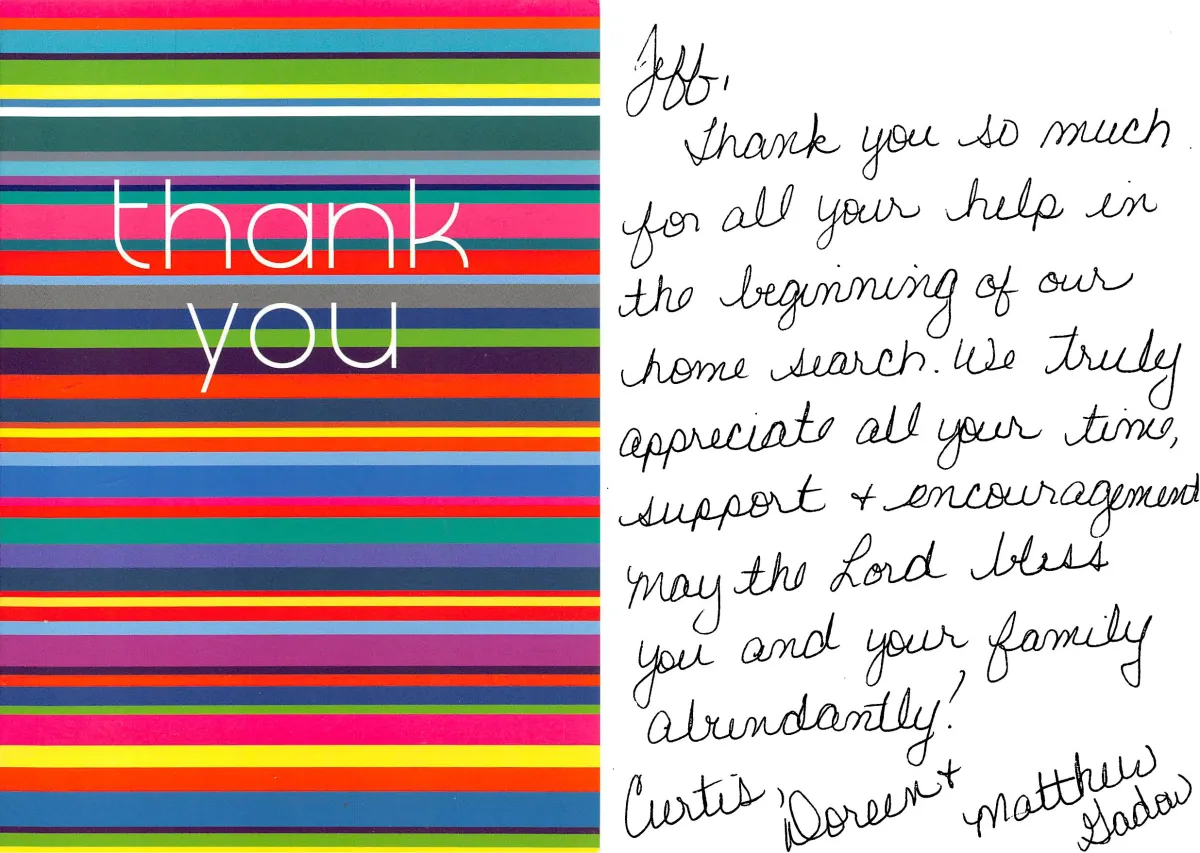 thank
you
Jeff,
Thank you so much
for all your help in
the beginning of our
home search. We truly
appreciate all your time,
support + encouragement
May the Lord bless
you and your family
abundantly!
Curtis, Doreen + Matthew
Gadow